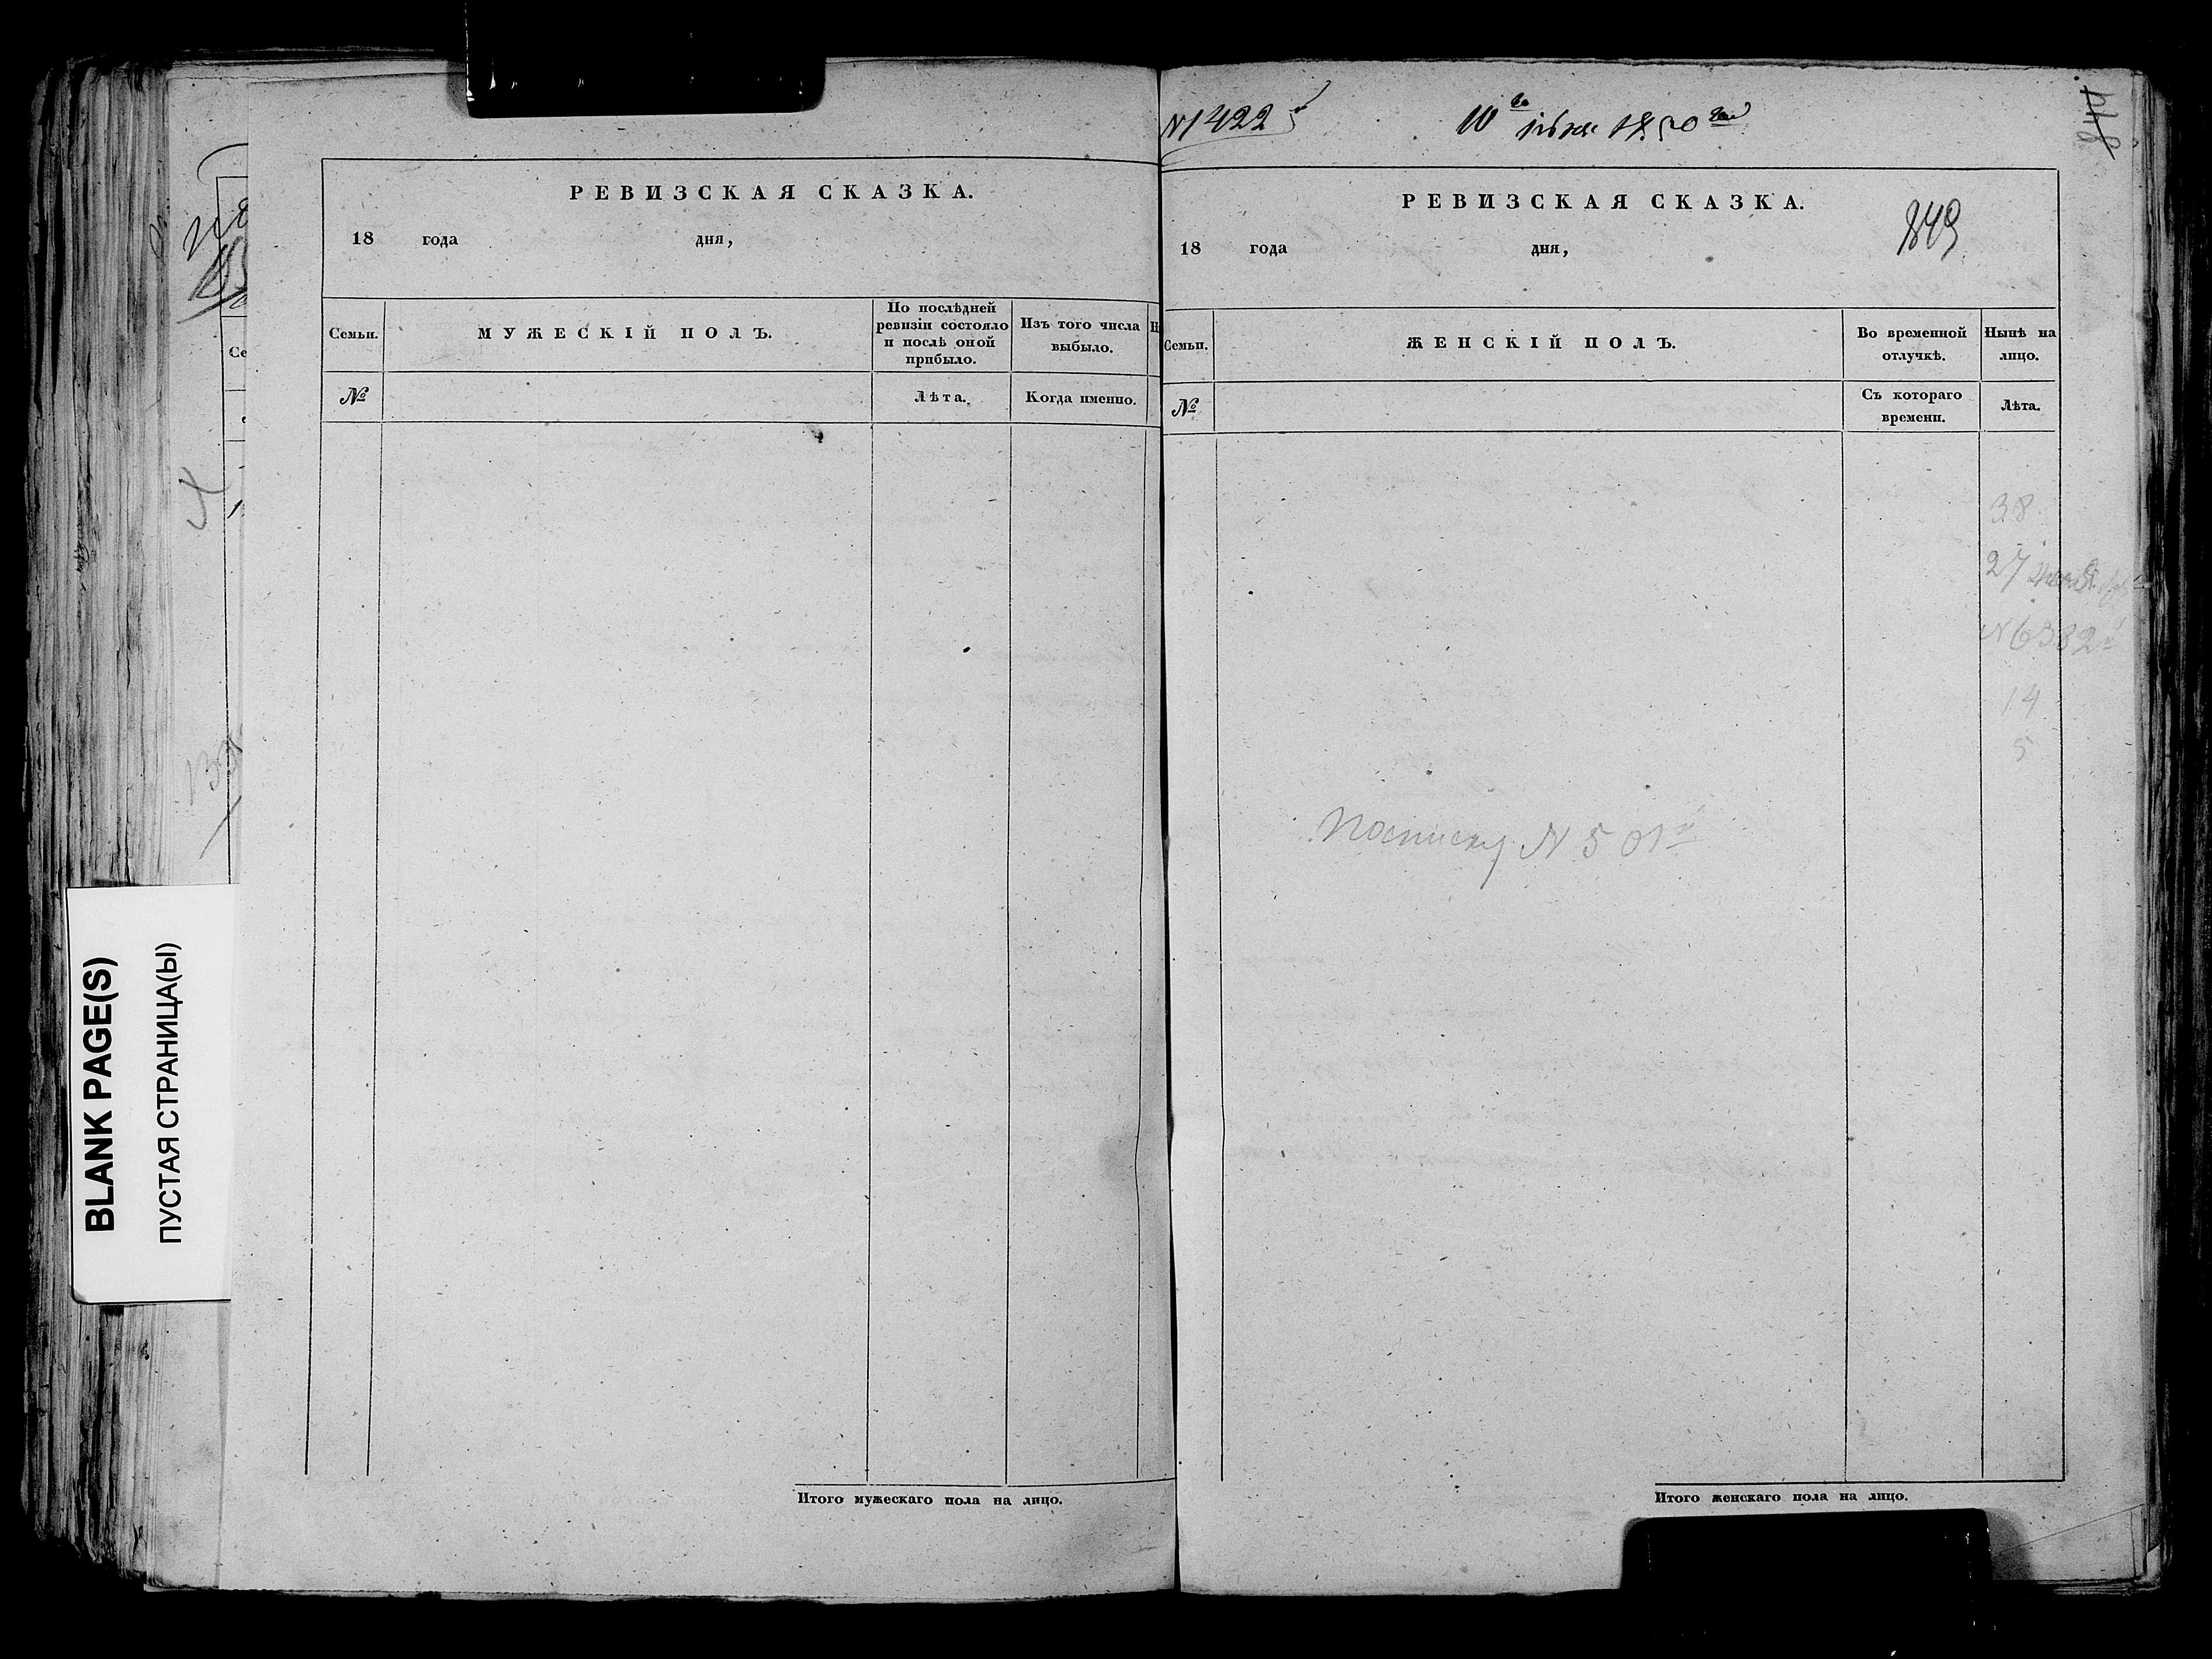 BLANK PAGE(S)
ПУСТАЯ СТРАНИЦА(Ы)
РЕВИЗСКАЯ СКАЗКА.
18 года дня,
Семьи.
МУЖЕСКІЙ ПОЛЪ.
По послѣдней
ревизіи состояло
и послѣ оной
прибыло.
Изъ того числа
выбыло.
№
Лѣта.
Когда именно.
Итого мужескаго пола на лицо.
N1422й
10го іюня 1850 года
849
РЕВИЗСКАЯ СКАЗКА.
18 года дня,
Семьи.
ЖЕНСКІЙ ПОЛЪ.
Во временной
отлучкѣ.
Нынѣ на
лицо.
№
Съ котораго
времени.
Лѣта.
38
27
N6382й
14
5
По списку N 501й
Итого женскаго пола на лицо.